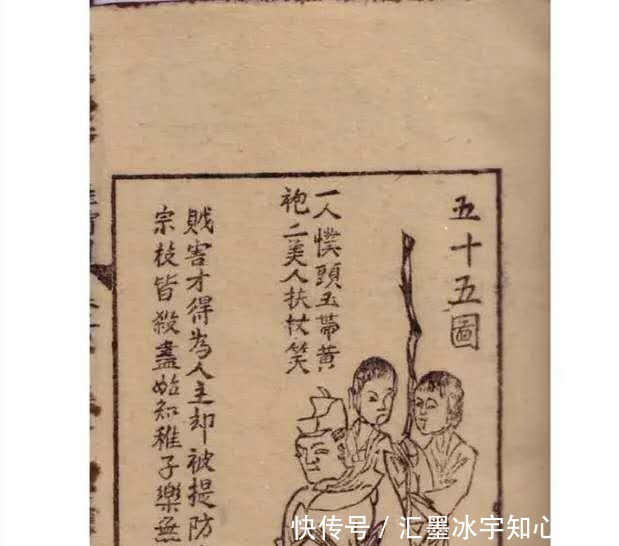 五十五圖
一人幞頭玉帶黃
袍二美人扶杖笑
戝害才得為人主却被提防
宗枝皆殺盡始知稚子樂無
快传号 / 汇墨冰宇知心